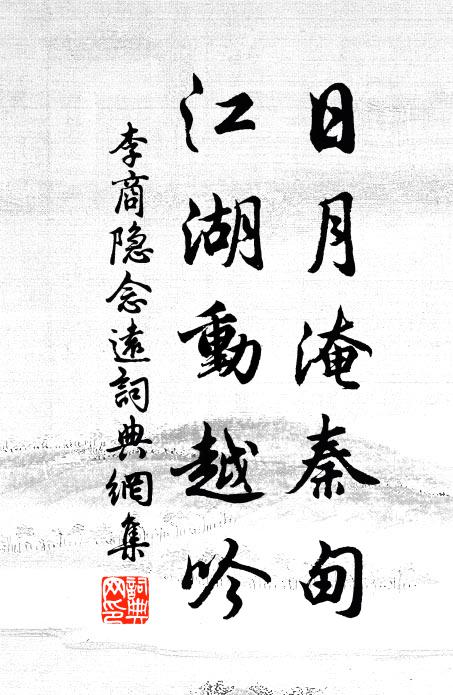 日月淹秦甸
江湖動越吟
李商隐念遠詞典網集
詞典网印